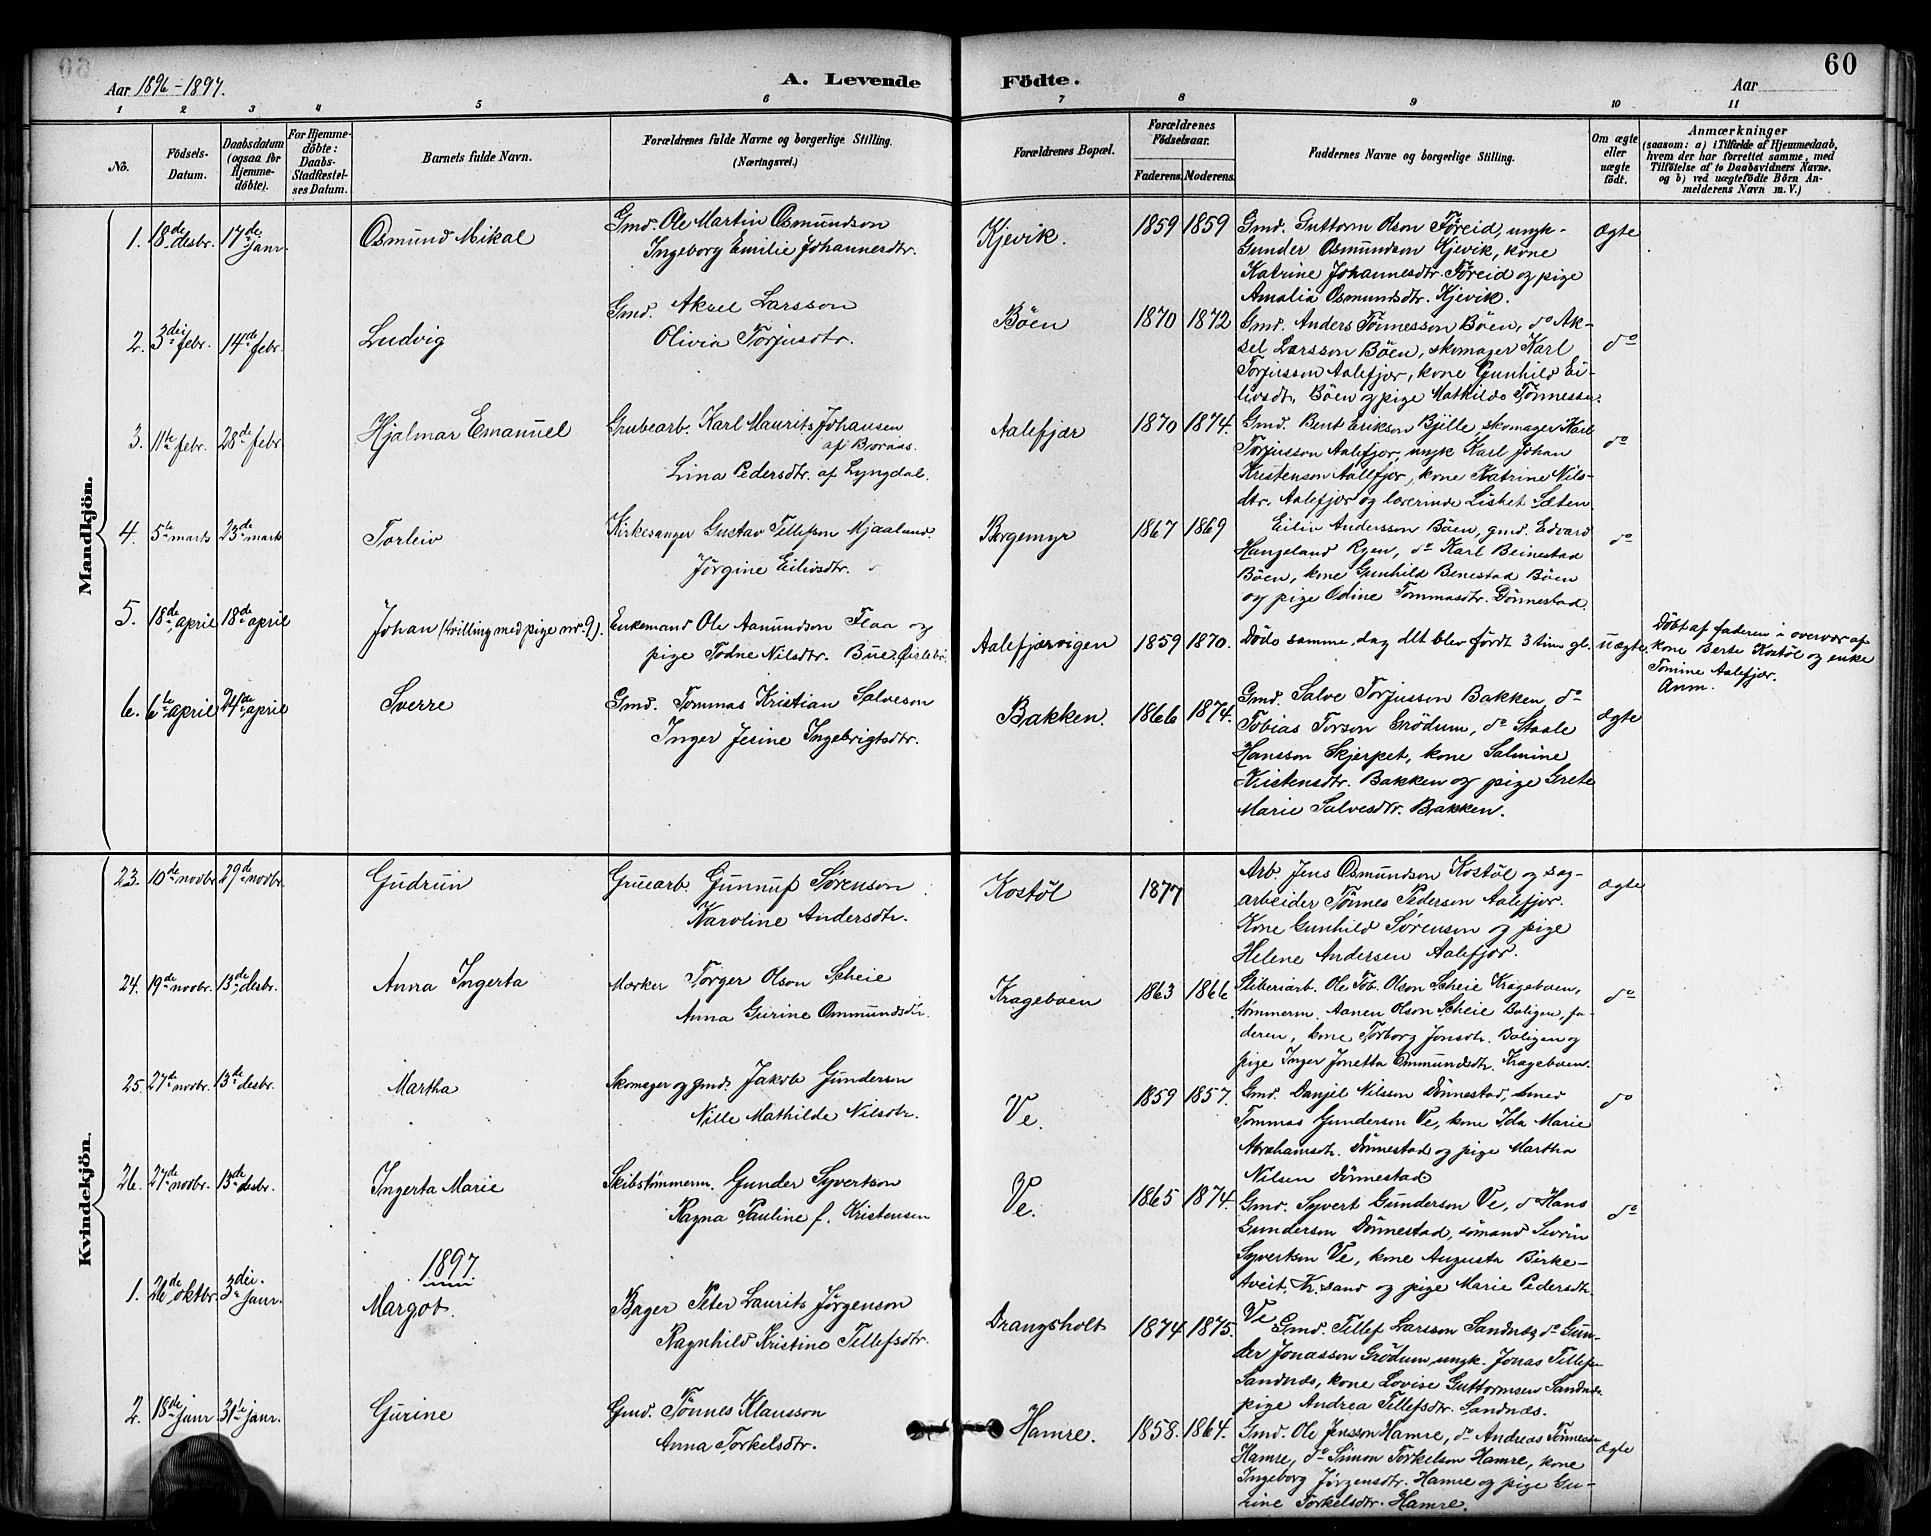 60
Aar 1896-1897.
A. Levende Födte.
Aar
1 2 3 4 5 6 7 8 9 10 11
No.
Födsels-Datum.
Daabsdatum (ogsaa for Hjemme-döbte).
For Hjemme-döbte: Daabs-Stadfæstel-ses Datum.
Barnets fulde Navn.
Forældrenes fulde Navne og borgerlige Stilling.
(Næringsvei.)
Forældrenes Bopæl.
Forældrenes Födselsaar.
Faderens. Moderens.
Faddernes Navne og borgerlige Stilling.
Om ægte eller uægte födt.
Anmærkninger
(saasom: a) i Tilfælde af Hjemmedaab,
hvem der har forrettet samme, med
Tilföielse af to Daabsvidners Navne,
og b) ved uægtefödte Börn An-
melderens Navn m. V.)
Mandkjön.
1. 18de desbr. 17de janr. Osmund Mikal
Gmd. Ole Martin Osmundson
Ingeborg Emilie Johannesdtr.
Kjevik. 1859 1859
Gmd. Guttorm Olson Föreid, ungk.
Gunder Osmundson Kjevik, kone
Katrine Johannesdtr. Föreid og pige
Amalia Osmundsdtr. Kjevik.
ægte
2. 3die febr. 14de febr. Ludvig
Gmd. Aksel Larsson
Olivia Torjusdtr.
Böen 1870 1872
Gmd. Anders Tönnesson Böen, do Ak-
sel Larsson Böen, skomager Karl
Torjusson Aalefjær, kone Gunhild Ei-
livsdtr. Böen og pige Mathilde Tönnessen.
do
3. 11te febr. 28de febr Hjalmar Emanuel
Grubearb. Karl Maurits Johansen
af Bjoraas.
Lina Pedersdtr. af Lyngdal.
Aalefjær 1870 1874.
Gmd. Bent Erikson Bjille, skomager Karl
Torjusson Aalefjær, ungk Karl Johan
Kristenson Aalefjær, kone Katrine Nils-
dtr. Aalefjær og lærerinde Lisbet Sæten.
do
4. 5te marts 23de marts Torleiv
Kirkesanger Gustav Tellefson Mjaaland.
Jörgine Eilivsdtr.
Bergemyr 1867 1869
Eiliv Andersson Böen, gmd. Edvard
Hangeland Ryen, do Karl Beinestad
Böen, kone Gunhild Benestad Böen
og pige Odine Tommasdtr. Dönnestad.
do
5. 18de april 18de april Johan (tvilling med pige nr. 9).
Enkemand Ole Aanundson Flaa og
pige Todne Nilsdtr. Bue,
Aalefjærvigen 1859 1870.
Döde samme dag det blev födt 3 tim gl.
uægte.
Döbt af faderen i overvær af
kone Berte Kostöl og enke
Tomine Aalefjær.
Anm.
6. 6te april 24de april Sverre
Gmd. Tommas Kristian Salveson
Inger Jesine Ingebrigtsdtr.
Bakken. 1866 1874.
Gmd. Salve Torjusson Bakken, do
Tobias Torson Grödum, do Staale
Hansson Skjerpet, kone Salmine
Kristensdtr. Bakken og pige Grete
Marie Salvesdtr. Bakken.
ægte
Kvindekjön.
23. 10de novbr. 29de novbr. Gudrun
Gruearb. Gunnuf Sörenson
Karoline Andersdtr.
Kostöl 1877
Arb. Jens Osmundson Kostöl og sag-
arbeider Tönnes Pederson Aalefjær.
Kone Gunhild Sörenson og pige
Helene Andersen Aalefjær.
ægte
24. 19de novbr. 13de desbr. Anna Ingerta
Mærker Torger Olson Scheie
Anna Gurine Ommundsdtr.
Krageboen 1863 1866
Sliberiarb. Ole Tob. Olson Scheie Krageboen,
tömmerm. Aanen Olson Scheie Boligen, fa-
deren, kone Torborg Jonsdtr. Boligen og
pige Inger Jonetta Ommundsdtr. Krageboen.
do
25. 27de novbr. 13de desbr. Martha
Skomager og gmd. Jakob Gunderson
Nille Mathilde Nilsdtr.
Ve. 1859 1857.
Gmd. Danjel Nilsson Dönnestad, smed
Tommas Gunderson Ve, kone Ida Marie
Abrahamsdtr. Dönnestad og pige Martha
Nilsen Dönnestad
do
26. 27de novbr. 13de desbr. Ingerta Marie
Skibstömmerm. Gunder Syvertson
Ragna Pauline f. Kristensen
Ve. 1865 1874.
Gmd. Syvert Gunderson Ve, do Hans
Gunderson Dönnestad, sömand Sevrin
Syvertson Ve, kone Augusta Birke-
tveit, Kr.sand og pige Marie Pedersdtr.
Ve
do
1897
1. 26de oktbr. 3die janr. Margot.
Bager Peter Laurits Jörgenson
Ragnhild Kristine Tellefsdtr.
Drangsholt 1874 1875.
Gmd. Tellef Larsson Sandnæs, do Gun-
der Jonasson Grödum, ungk. Jonas Tellefsen
Sandnæs, kone Lovise Guttormsen Sandnæs
pige Andrea Tellefsdtr. Sandnæs.
2. 18de janr 31te janr. Gurine
Gmd. Tönnes Klausson
Anna Torkelsdtr.
Hamre. 1858. 1864.
Gmd. Ole Jensson Hamre, do Andreas Tönnessen
Hamre, do Simon Torkelson Hamre, kone
Ingeborg Jörgensdtr. Hamre og pige Gu-
rine Torkelsdtr. Hamre.
ægte